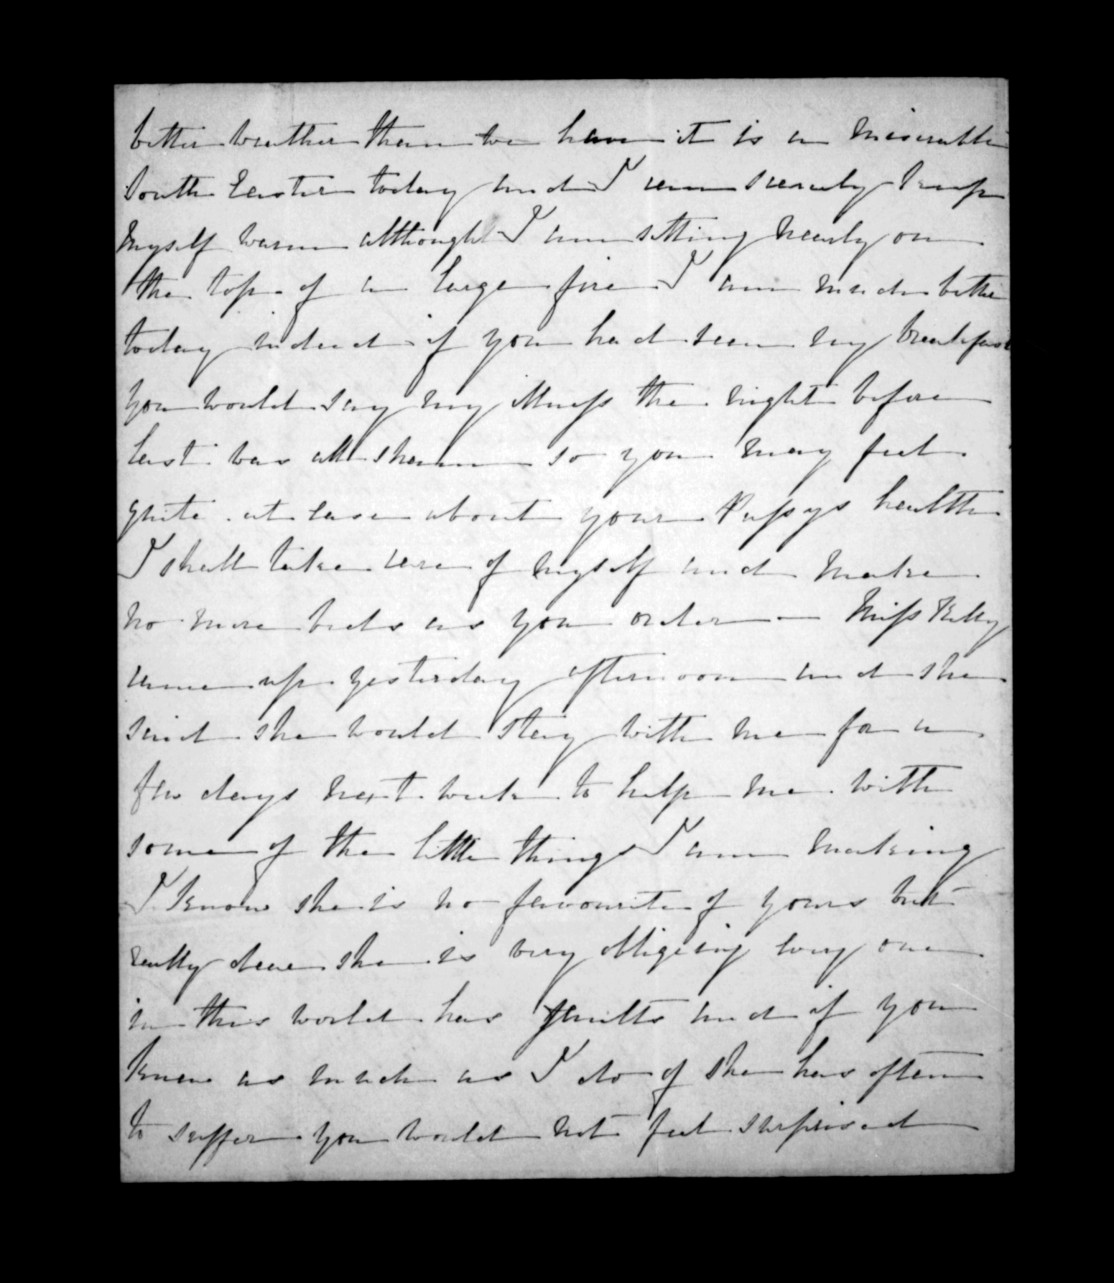 better weather than we have it is a miserable
South Easter today and I can scarcely keep
myself warm although I am sitting nearly on
the top of a large fire I am much better
today indeed if you had seen my breakfast
you would say my illness the night before
last was all sham so you may feel
quite at ease about your Pussys health
I shall take care of myself and make
no more beds as you order — Miss Kelly
came up yesterday afternoon and she
said she would stay with me for a
few days next week to help me with
some of the little things I am making
I know she is no favourite of yours but
really dear she is very obligeing every one
in this world has faults and if you
knew as much as I do of she has often
to suffer you would not feel surprised